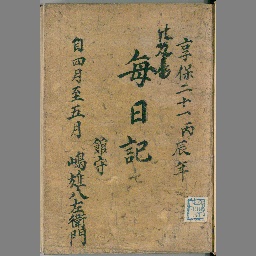 享保二十一丙辰年
毎日記
自四月至五月
館守
嶋雄八左衛門